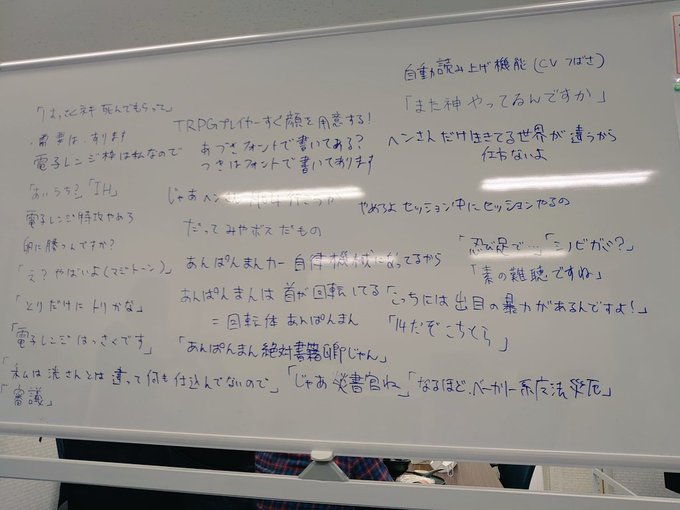 自動読み上げ機能(CVつばさ)
「また神やってるんですか」
ヘンさんだけ生きてる世界が違うから
仕方ないよ
死んでもらって」
・需要はあります
電子レンジ枠は私なので
「あいうち?」「IH」
電子レンジ特攻やめろ
卵に勝つんですか?
「え?やばいよ(マジトーン)」
「とりだけにトリかな」
「電子レンジはっさくです」
TRPGプレイヤーすぐ顔を用意する!
あづさフォントで書いてある?
つきはフォントで書いてあります
じゃあヘン
やめろよセッション中にセッションやるの
だってみやボスだもの
あんぱんまんカー自律機械になってるから
あんぱんまんは首が回転してる
=回転体あんぱんまん
「あんぱんまん絶対書籍卿じゃん」
「忍び足で…」「シノビガミ?」
「素の難聴ですね」
「こっちには出目の暴力があるんですよ!」
「14だぞこちとら」
「私は洗さんとは違って何も仕込んでないので」「じゃあ災書官ね」「なるほど.ベーカリー系魔法災厄」
「審議」